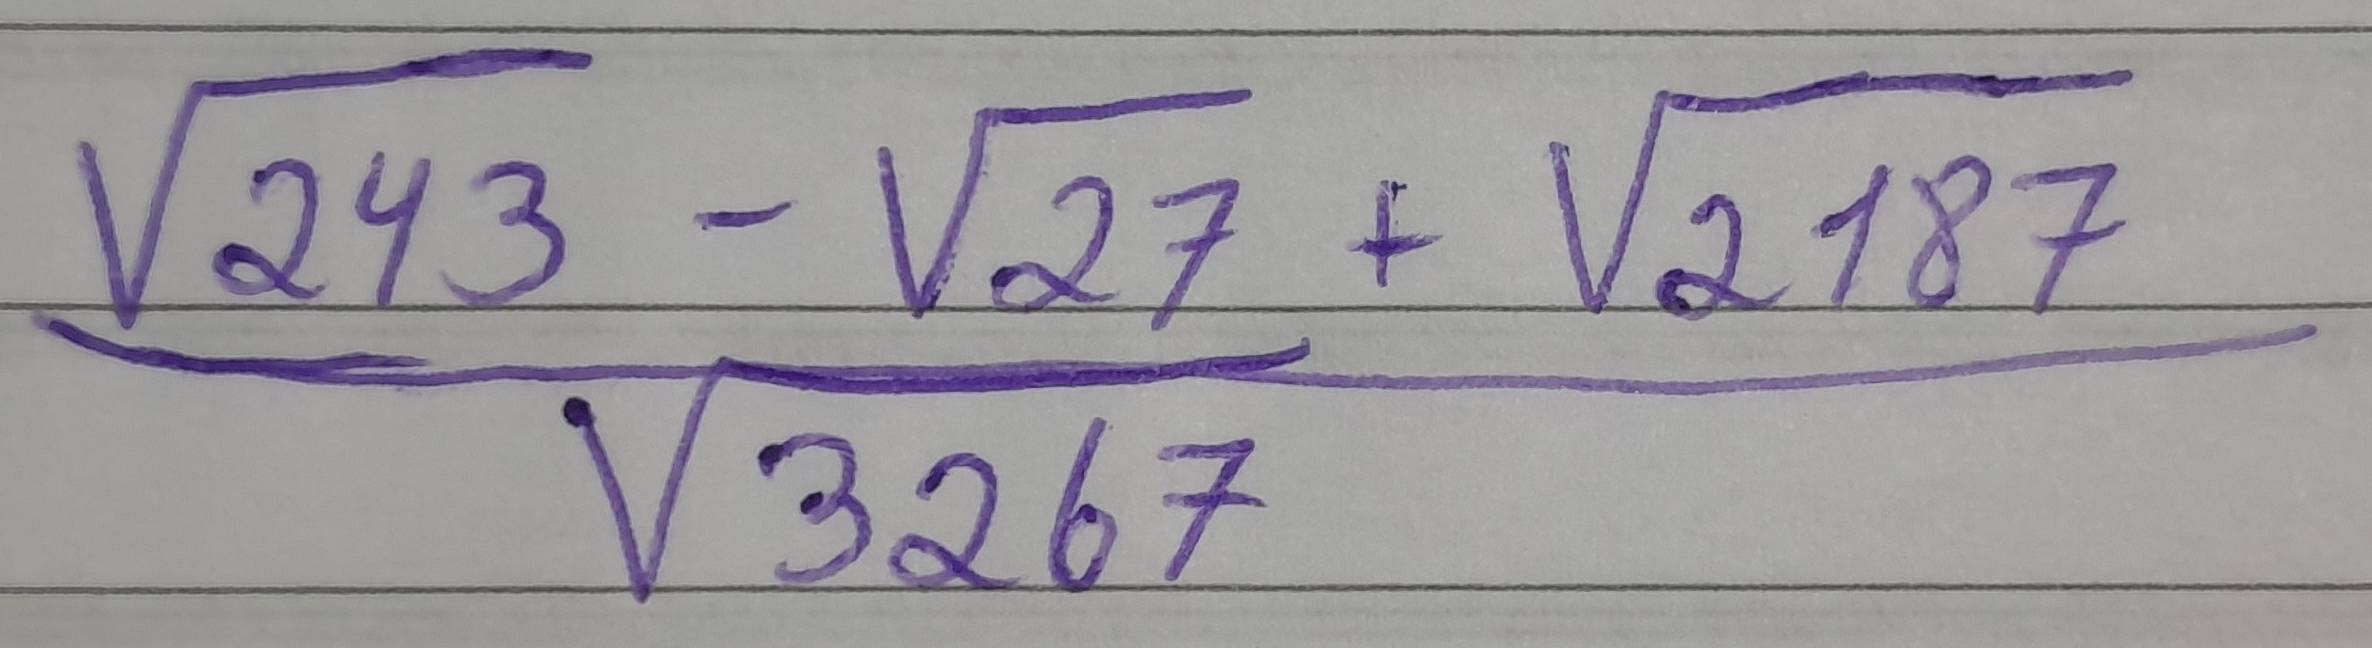 √243 - √27 + √2187
√3267